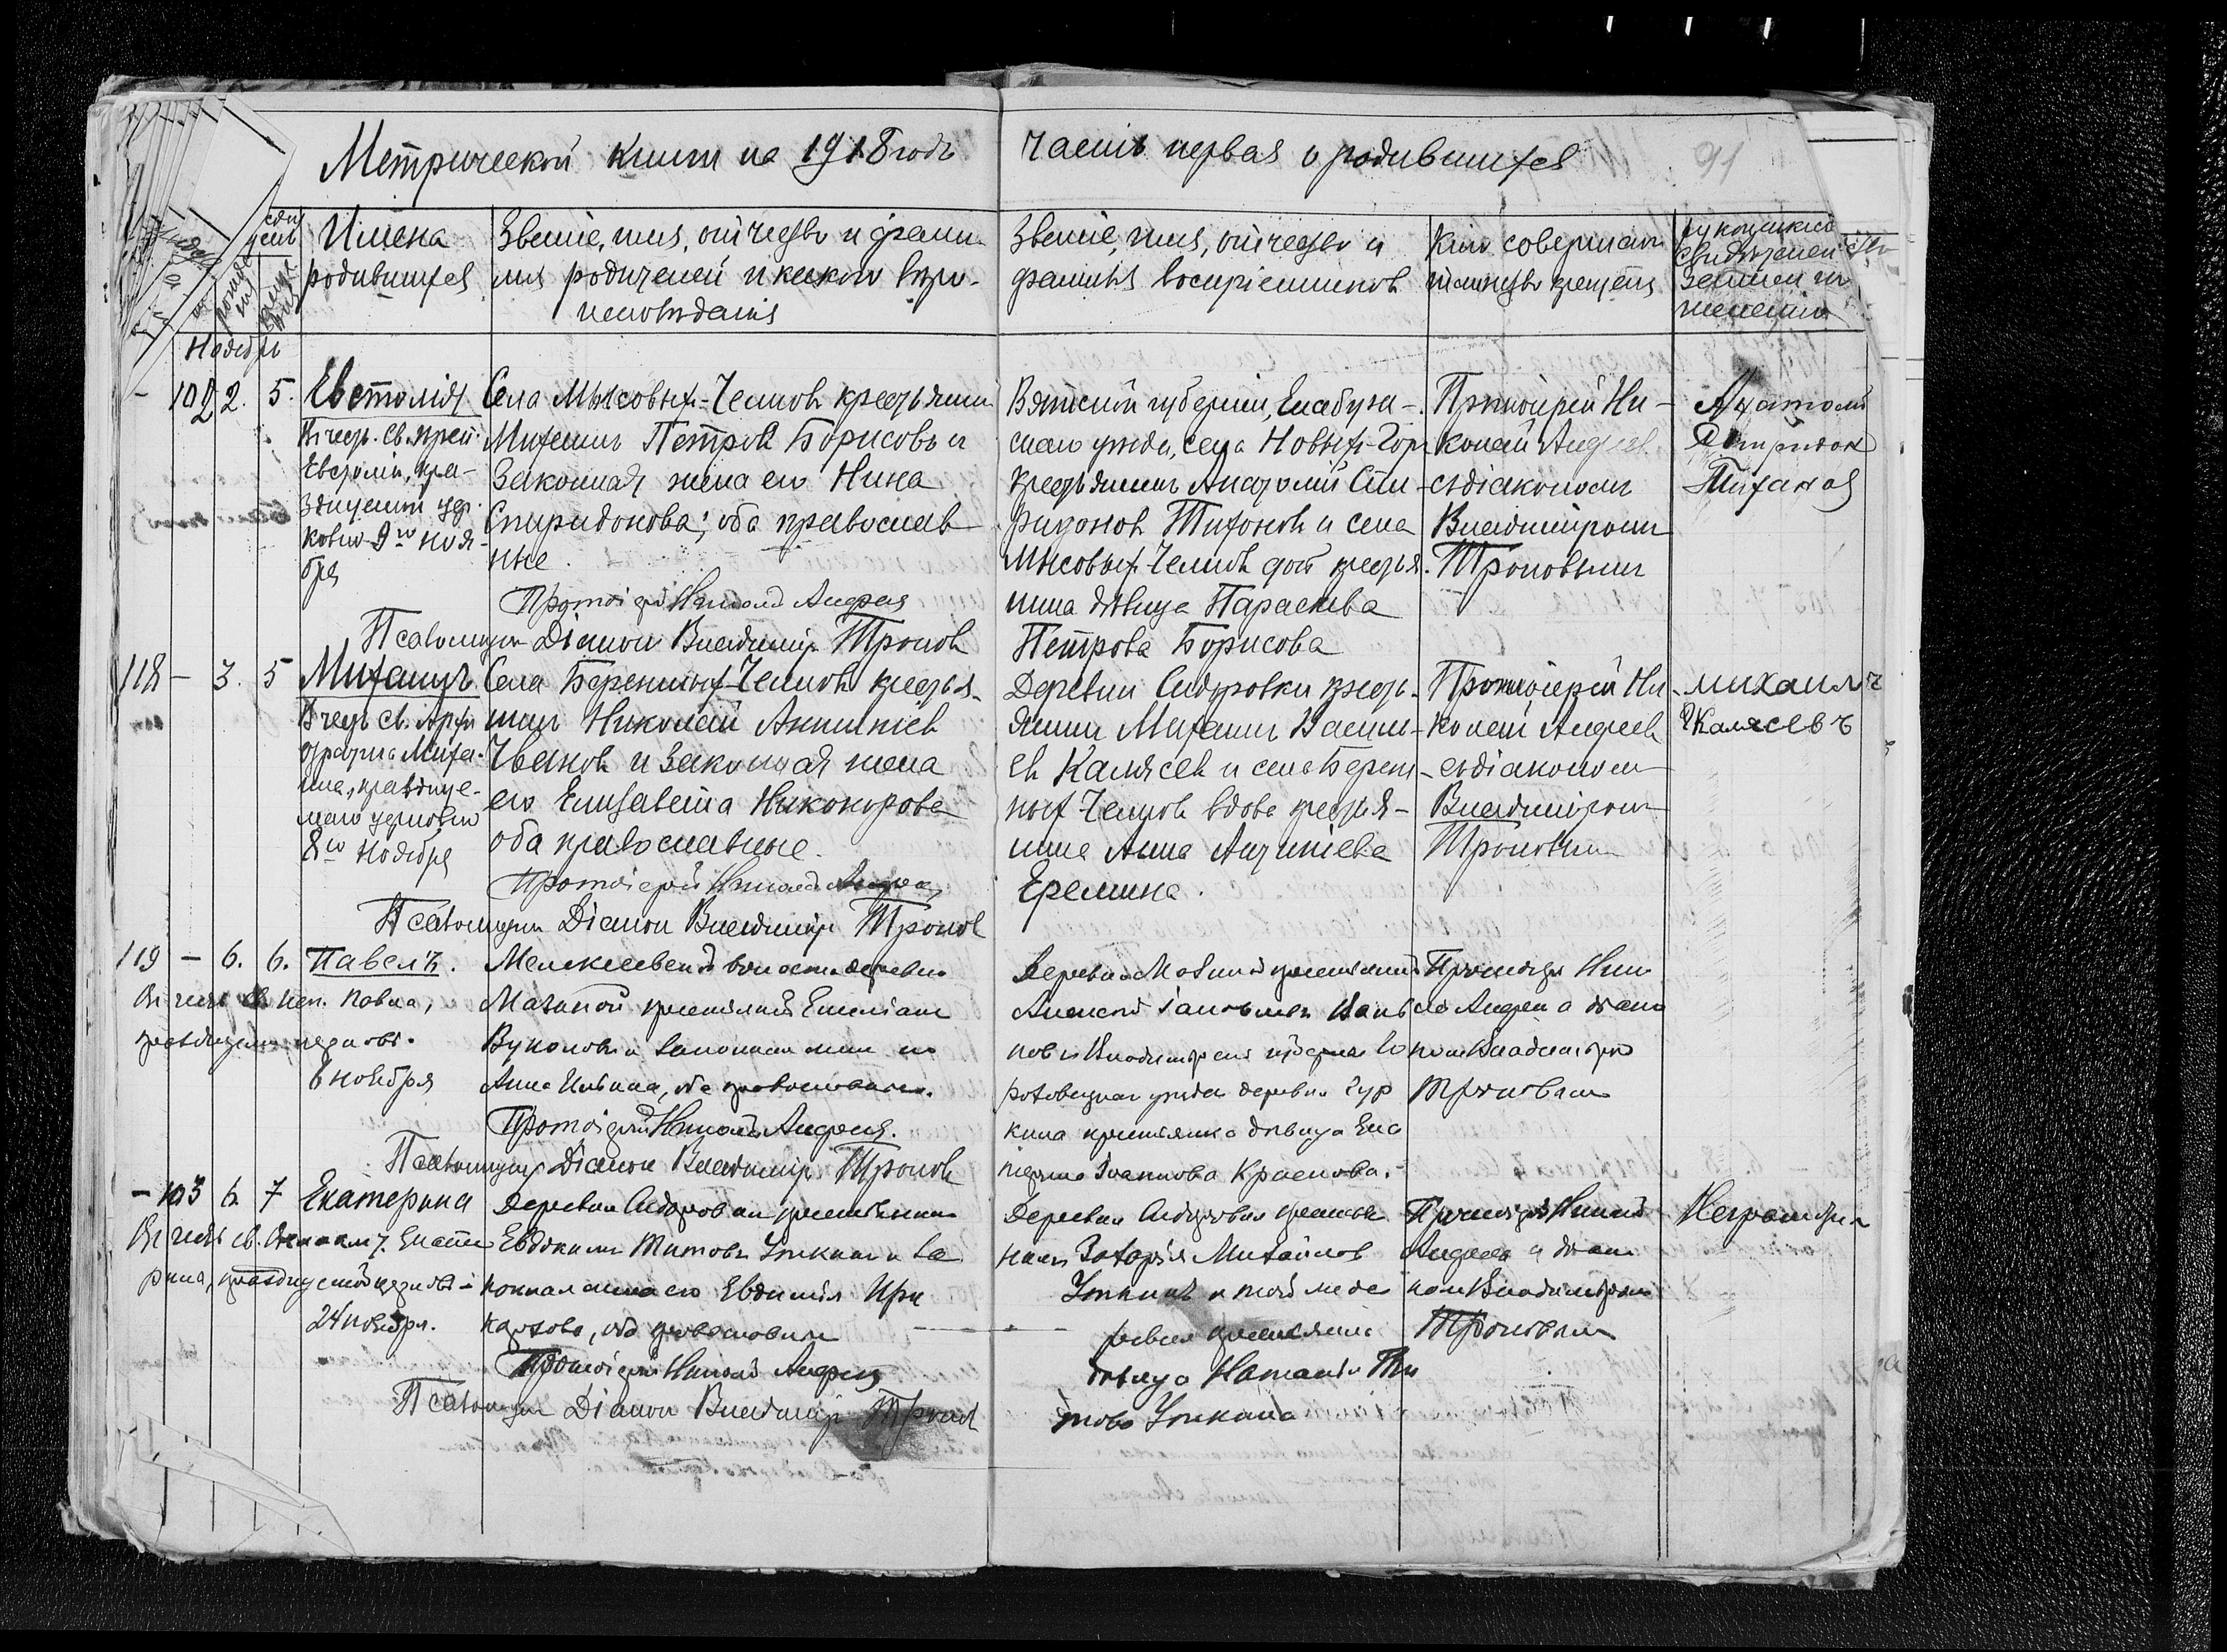 Метрической книги на 1918 годъ
часть первая о родившихся
91
Имена
родившихся
Званіе, имя, отчество и фами-
лия родителей и какого веро-
исповѣданія
Званіе, имя, отчество и
фамилія воспріемниковъ
Кто совершалъ
таинство крещенія
Рукоприкл
свидѣтелей
записи по
желанію
Ноябрь
- 102 2. 5. Евстолія
Въ честь св. прей.
Евстоліи, пра-
зднуемой цер-
ковію 9го ноя-
бря
Села Мысовыхъ-Челновъ крестьянинъ
Михаилъ Петровъ Борисовъ и
законная жена его Нина
Спиридонова; оба православ
ные.
Протоіерей Николай Андреевъ
Псаломщикъ Діаконъ Владиміръ Троповъ
Вятской губерніи, Елабуж-
скаго уѣзда, села Новыхъ-Гор
крестьянинъ Анатолій Спи-
ридоновъ Тихоновъ и села
Мысовыхъ-Челновъ дочь крестья-
нина дѣвица Параскева
Петрова Борисова
Протоіерей Ни-
колай Андреевъ
съ діакономъ
Владиміромъ
Троповымъ
Анатолій
Спиридон
Тиханов
118 - 3. 5 Михаилъ
Въ честь св. Архи
стратига Миха-
ила, празднуе-
маго церковію
8го ноября
Села Бережныхъ-Челновъ крестья-
нинъ Николай Ананіевъ
Чвановъ и законная жена
его Елизавета Никонорова
оба православные.
Протоіерей Николай Андреевъ
Псаломщикъ Діаконъ Владиміръ Троповъ
Деревни Сидоровки кресть-
янинъ Михаилъ Васильевъ
евъ Калясевъ и села Береж-
ныхъ Челновъ вдова крестья-
нина Анна
Еремина.
Протоіерей Ни-
колай Андреев
съ діакономъ
Владиміромъ
Троповымъ
михаилъ
Калясевъ
119 - 6. 6. Павелъ.
Въ честь св. исп. Павла,
празднуем церкові.
6 ноября
Мелекесской волости деревни
крестьянинъ Емеліанъ
Вуколовъ и законная жена его
Анна Ильина, оба православные.
Протоіерей Николай Андреевъ.
Псаломщикъ Діаконъ Владиміръ Троповъ
Деревни крестьянинъ
Алексѣй
нов и Владимірской губерніи Го
роховецкаго уѣзда деревни Гур
кина крестьянка дѣвица Ека
терина Іоаннова Краснова.
Протоіерей Нико
лай Андреев и діако
номъ Владиміромъ
Троповымъ
- 103 6. 7 Екатерина
Въ честь св. Екате
рина, празднуемой церкові-
24 ноября.
Деревни Сидоровки крестьянинъ
Евдокимъ Титовъ Уткинъ и за
конная жена его Евдокія
оба православные
Протоіерей Николай Андреевъ
Псаломщикъ Діаконъ Владиміръ Троповъ
Деревни Сидоровки крестья
нинъ Захарія Михайлов
Уткинъ и той же де
ревни крестьянина
дѣвица Наталія Ти
това Уткина
Протоіерей Николай
Андреев и діако
номъ Владиміромъ
Троповымъ
Неграмотн